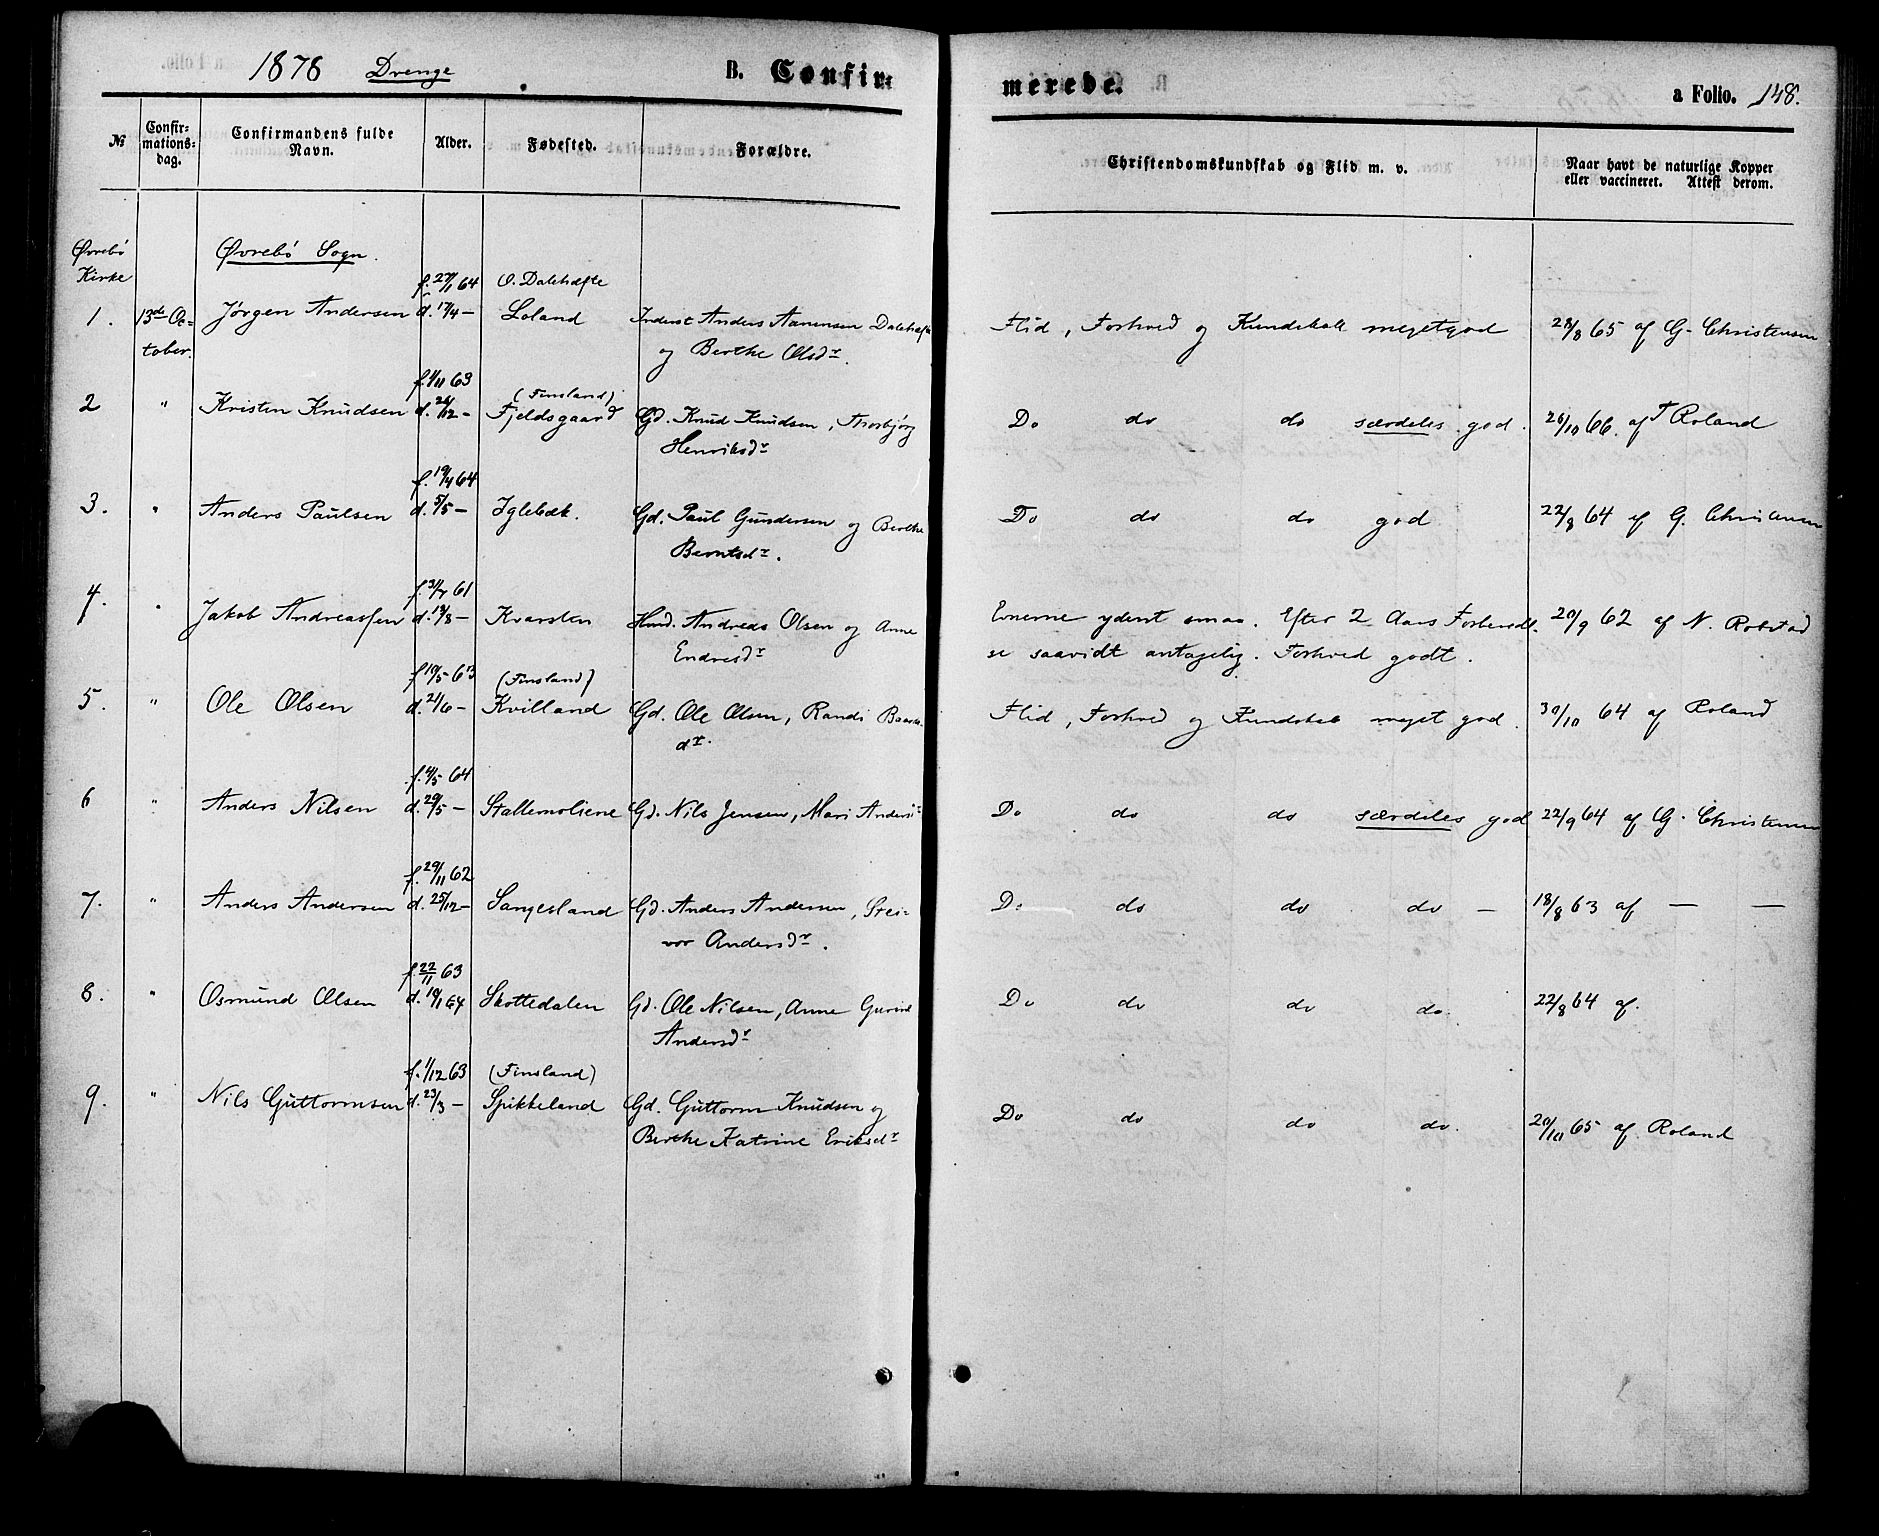 1878 Drenge B. Confir-
merede. a Folio. 148.
№ Confir-
mations-
dag. Confirmandens fulde
Navn. Alder. Fødested. Forældre. Christendomskundskab og Flid m. v. Naar havt de naturlige Kopper
eller vaccineret. Attest derom.
Øvrebö
Kirke Øvrebö Sogn.
f. 27/1 64 O. Dalehefte
1. 13de Oc- Jørgen Andersen d. 17/4 — Loland Inderst Anders Aanensen Dalehefte Flid, Forhold og Kundskab megetgod 28/8 65 af G. Christensen
tober. og Berthe Olsdr.
f. 1/11 63 (Finsland)
2 " Kristen Knudsen d. 26/12 - Fjeldsgaard Gd. Knud Knudsen, Thorbjørg Do do do særdeles god. 26/10 66. af T Roland
Henriksdr
f. 19/4 64
3. " Anders Paulsen d. 5/5 — Iglebæk. Gd. Paul Gundersen og Berthe Do do do god 22/8 64 af G. Christensen
Berntsdr.
f. 31/7 61
4. " Jakob Andreassen d. 18/8 — Kvarsten Hmd. Andreas Olsen og Anne Evnerne yderst smaa. Efter 2 Aars Forberedel- 20/9 62 af N. Robstad
Endresdr se saavidt antagelig. Forhold godt.
f 10/5 63 (Finsland)
5. " Ole Olsen d. 21/6 — Kvilland Gd. Ole Olsen, Randi Flid, Forhold og Kundskab meget god. 30/10 64 af Roland
dr.
f. 4/5 64
6 " Anders Nilsen d. 29/5 — Stallemoliene Gd. Nils Jensen, Mari Andersdr Do do do særdeles god 22/9 64 af G. Christensen
f. 29/11 62
7. " Anders Andersen d. 25/12 — Sangesland Gd. Anders Andersen, Stei- Do do do do — 18/8 63 af — —
vor Andersdr.
f. 22/11 63
8. " Osmund Olsen d. 10/1 64 Skottedalen Gd. Ole Nilsen, Anne Gurine Do do do do. 22/8 64 af.
Andersdr
f. 1/12 63 (Finsland)
9. " Nils Guttormsen d. 23/3 — Spikkeland Gd. Guttorm Knudsen og Do do do do. 20/10 65 af Roland
Berthe Katrine Eriksdr